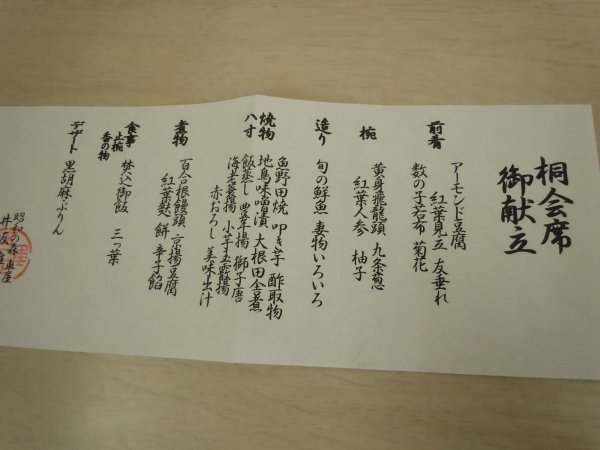 桐会席
御献立
前肴
アーモンド豆腐
紅葉見立 友垂れ
数の子若布 菊花
椀
黄身飛龍頭 九条葱
紅葉人参 柚子
造り
旬の鮮魚 妻物いろいろ
焼物
八寸
魚野田焼 叩き芋 酢取物
地鳥味噌漬 大根田舎煮
飯蒸し 豊年揚 獅子唐
海老蓑揚 小芋玉霰揚
赤おろし 美味出汁
煮物
百合根饅頭 京揚豆腐
紅葉麩 餅 辛子餡
食事
止椀
香の物
焚込御飯 三つ葉
デザート
黒胡麻ぷりん
昭和の森 車屋